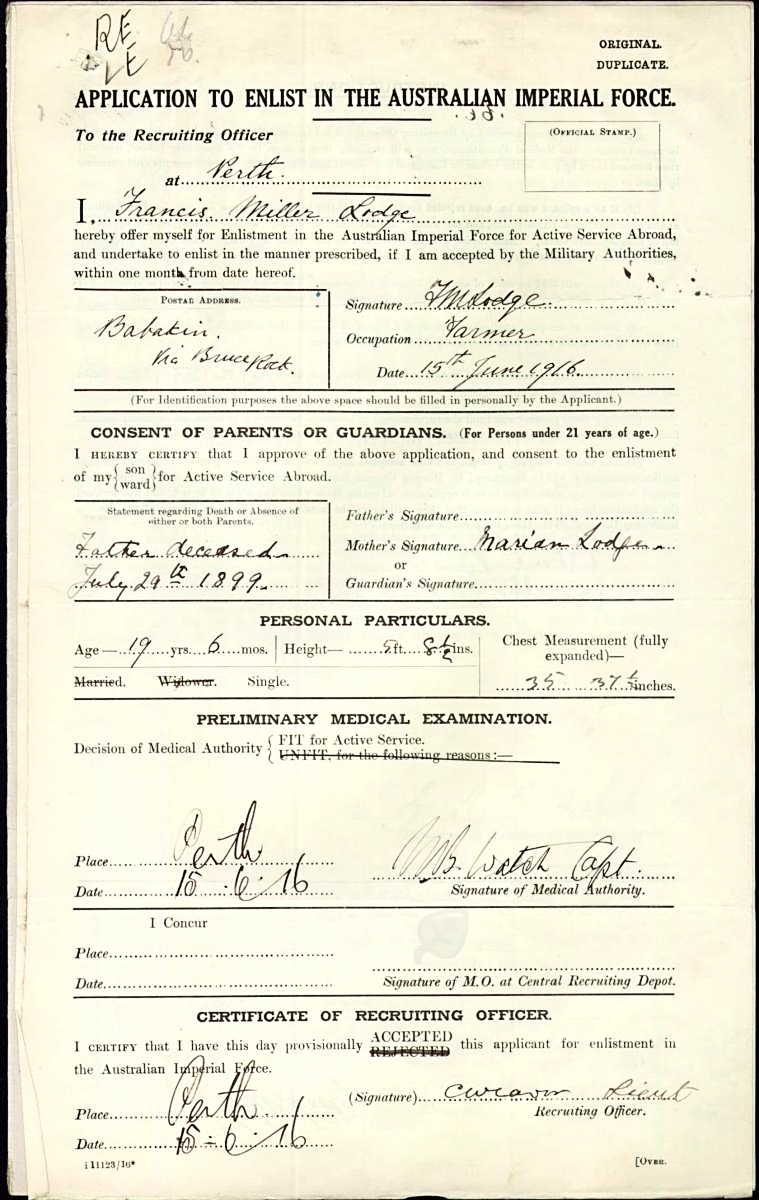 RE
LE
ORIGINAL.
DUPLICATE.
APPLICATION TO ENLIST IN THE AUSTRALIAN IMPERIAL FORCE.
To the Recruiting Officer
(OFFICIAL STAMP.)
at Perth.
I, Francis Miller Lodge
hereby offer myself for Enlistment in the Australian Imperial Force for Active Service Abroad,
and undertake to enlist in the manner prescribed, if I am accepted by the Military Authorities,
within one month from date hereof.
POSTAL ADDRESS.
Babakin.
Via Bruce Rock.
Signature F M Lodge
Occupation Farmer
Date 15th June 1916
(For Identification purposes the above space should be filled in personally by the Applicant.)
CONSENT OF PARENTS OR GUARDIANS. (For Persons under 21 years of age.)
I HEREBY CERTIFY that I approve of the above application, and consent to the enlistment
of my {son ward} for Active Service Abroad.
Statement regarding Death or Absence of
either or both Parents.
Father deceased
July 29th 1899
Father's Signature
Mother's Signature Marian Lodge
or
Guardian's Signature
PERSONAL PARTICULARS.
Age— 19 yrs. 6 mos.
Height— 5 ft. 8 1/2 ins.
Chest Measurement (fully
expanded)—
35 37 1/2 inches.
Married. Widower. Single.
PRELIMINARY MEDICAL EXAMINATION.
Decision of Medical Authority { FIT for Active Service.
{ UNFIT, for the following reasons:—
Place Perth
Date 15.6.16
Capt.
Signature of Medical Authority.
I Concur
Place
Date
Signature of M.O. at Central Recruiting Depot.
CERTIFICATE OF RECRUITING OFFICER.
I CERTIFY that I have this day provisionally ACCEPTED REJECTED this applicant for enlistment in
the Australian Imperial Force.
Place Perth
Date 15-6-16
(Signature) Lieut
Recruiting Officer.
i 11123/16*
[OVER.